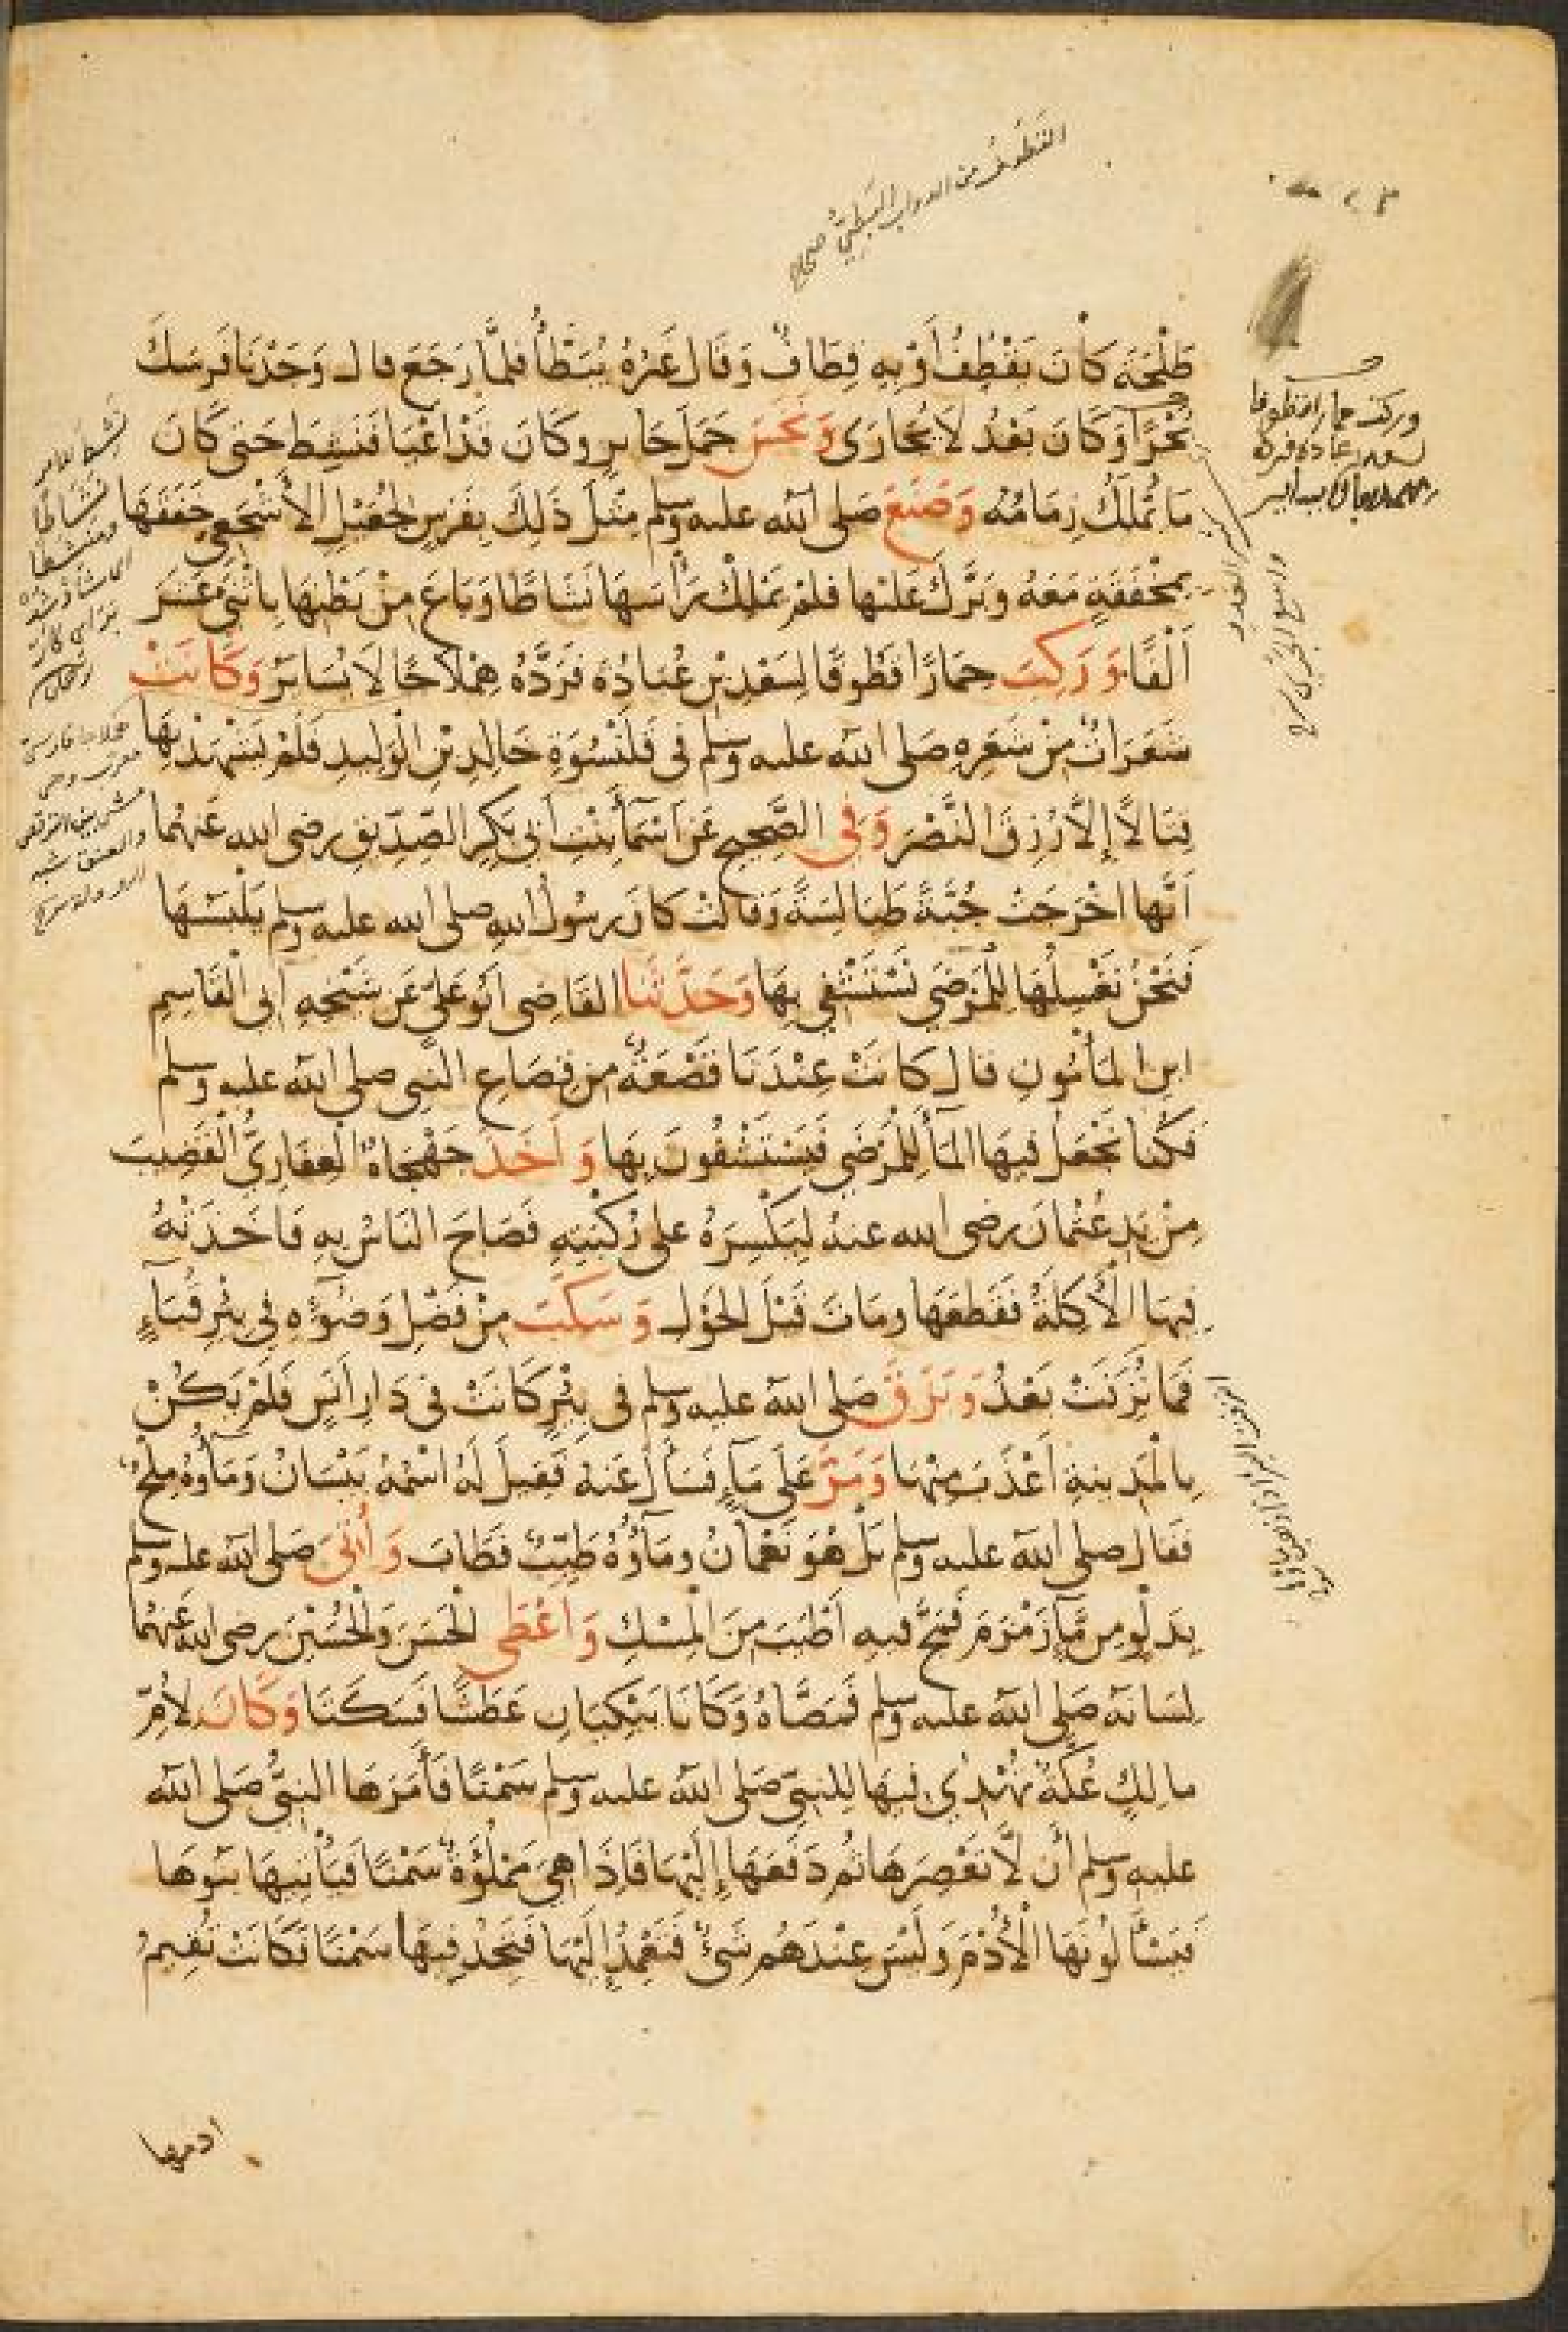 القَطُوفُ من الدواب البَطِيُّ صحاح
طَلْحَةَ كَانَ يَقْطِفُ أَوْ بِهِ قِطَافٌ وَقَالَ غَيْرُهُ يُبَطَّأُ فلمَّا رَجَعَ قال وَجَدْنَا فَرَسَكَ
بَحْرًا وَكَانَ بَعْدُ لَا يُجَارَى وَنَخَسَ جَمَلَ جَابِرٍ وكَانَ قَدْ أَعْيَا فَنَشِطَ حَتى كَانَ
مَا يُمْلَكُ زِمَامُهُ وَصَنَعَ صَلى الله عليه وسلم مِثْلَ ذَلِكَ بِفَرَسٍ لِجُعَيْلٍ الأَشْجَعِي خَفَقَهَا
بِمِخْفَقَةٍ مَعَهُ وَبَرَّكَ عَلَيْها فلمْ يَمْلِكْ رَأْسَهَا نَشَاطًا وَبَاعَ مِنْ بَطْنِهَا بِاثْنَيْ عَشَرَ
أَلْفًا وَرَكِبَ حِمَارًا قَطُوفًا لِسَعْدِ بْنِ عُبَادَةَ فَرَدَّهُ هِمْلَاجًا لَا يُسَايَرُ وَكَانَتْ
شَعَرَاتٌ مِنْ شَعَرِهِ صَلى الله عليه وسلم فى قَلَنْسُوَةِ خَالِدِ بْنِ الْوَلِيدِ فَلَمْ يَشْهَدْ بِهَا
قِتَالًا إِلَّا رُزِقَ النَّصْرَ وَفِي الصَّحِيحِ عَنْ اَسْمَآءَ بِنْتِ أَبِى بَكْرٍ الصِّدِّيقِ رضى الله عَنْهُما
اَنَّها اَخْرَجَتْ جُبَّةً طَيَالِسَةً وَقالتْ كانَ رسُولُ اللهِ صلى الله عليه وسلم يَلْبَسُهَا
فَنَحْنُ نَغْسِلُهَا لِلْمَرْضَى نَسْتَشْفِي بِهَا وَحَدَّثَنَا القَاضِى اَبُو عَلِىّ عَن شَيْخِهِ اَبِى الْقَاسِمِ
ابنِ المَأْمُونِ قال كَانَتْ عِنْدَنَا قَصْعَةٌ مِن قِصَاعِ النَّبِى صلى الله عليه وسلم
فَكُنا نَجْعَلُ فِيهَا المَآءَ لِلْمَرْضَى فَيَسْتَشْفُونَ بِهَا وَاَخَذَ جَهْجَاهٌ الغِفَارِيُّ الْقَضِيبَ
مِنْ يَدِ عُثْمانَ رضى الله عنه لِيَكْسِرَهُ على رُكْبَتِهِ فَصَاحَ النَّاسُ بِهِ فَاَخَذَتْهُ
فِيهَا الْأَكِلَةُ فَقَطَعَهَا ومَاتَ قَبْلَ الحَوْلِ وَسَكَبَ مِنْ فَضْلِ وَضُوْءِهِ فِي بِئْرِ قُبَآءٍ
فَمَا نُزِفَتْ بَعْدُ وَبَزَقَ صَلى الله عليه وسلم فى بِئْرٍ كَانَتْ فى دَارِ أَنَسٍ فَلَمْ يَكُنْ
بِالْمَدِينِةِ اَعْذَبَ مِنْهَا وَمَرَّ عَلَى مَآءٍ فَسَأَلَ عَنهُ فَقِيلَ لَهُ اسْمُهُ بَيْسَانُ وَمَآؤُهُ مِلْحٌ
فَقال صلى الله عليه وسلم بَلْ هُوَ نَعْمَانُ ومَآؤُهُ طَيِّبٌ فَطَابَ وَأُتِىَ صَلى الله عليه وسلم
بِدَلْوٍ مِن مَآءِ زَمْزَمَ فَمَجَّ فيهِ اَطْيَبَ مِنَ الْمِسْكِ وَاَعْطَى الْحَسَنَ وَالْحُسَيْنَ رضى الله عَنْهُمَا
لِسَانَهُ صَلى الله عليه وسلم فَمَصَّاهُ وَكَانَا يَبْكِيَانِ عَطَشًا فَسَكَتَا وَكَانَ لِأُمِّ
مالِكٍ عُكَّةٌ تُهْدِي فِيهَا لِلنَّبِيّ صَلى الله عليه وسلم سَمْنًا فَأَمَرَهَا النبيُّ صَلى الله
عليه وسلم أَن لَّا تَعْصِرَها ثُم دَفَعَهَا إِلَيْهَا فَإِذَا هِيَ مَمْلُوَّةٌ سَمْنًا فَيَأْتِيهَا بَنُوهَا
فَيَسْأَلُونَهَا الْأُدْمَ وَلَيْسَ عِنْدَهُم شَىْءٌ فَتَعْمِدُ إِلَيْهَا فَتَجِدُ فِيهَا سَمْنًا فَكَانَتْ تُقِيمُ
ادمها
وركب حمارا قطوفا
لسعد بن عباده فرده